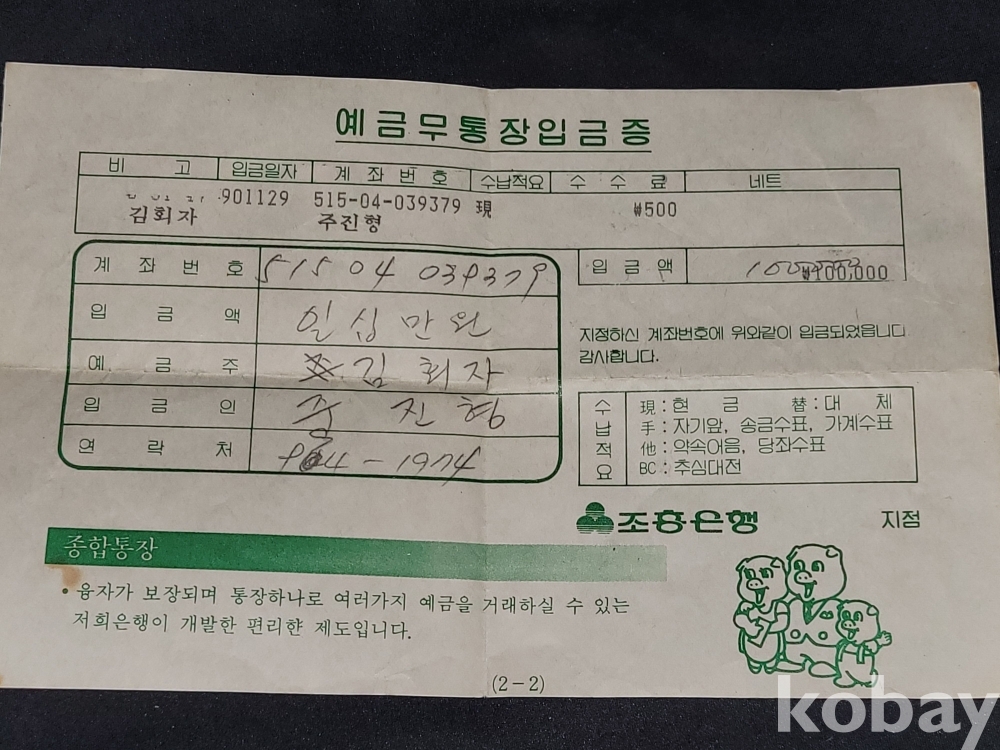 예금무통장입금증
비 고 입금일자 계 좌 번 호 수납적요 수 수 료 네트
901129 515-04-039379 現 ₩500
김회자 주진형
계 좌 번 호 515 04 039379
입 금 액 ₩100,000
입 금 액 일 십 만 원
지정하신 계좌번호에 위와같이 입금되었읍니다
감사합니다.
예 금 주 김 회 자
입 금 인 주 진 형
연 락 처
수납적요
現 : 현 금 替 : 대 체
手 : 자기앞, 송금수표, 가계수표
他 : 약속어음, 당좌수표
BC : 추심대전
조흥은행 지점
종합통장
• 융자가 보장되며 통장하나로 여러가지 예금을 거래하실 수 있는
저희은행이 개발한 편리한 제도입니다.
(2-2)
kobay